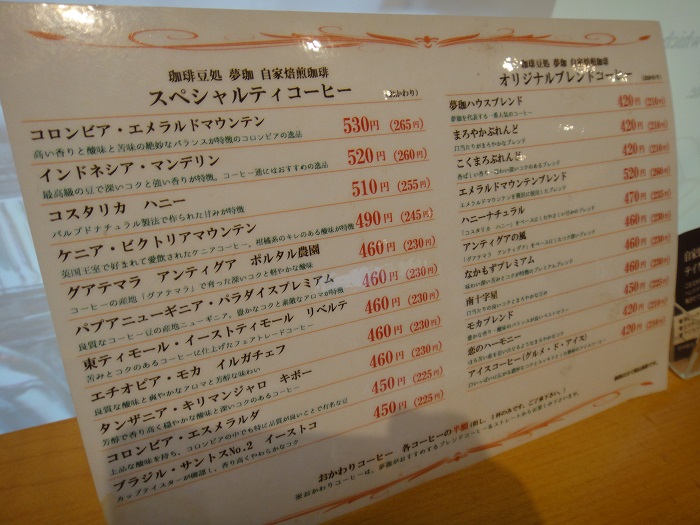 珈琲豆処 夢珈 自家焙煎珈琲
スペシャルティコーヒー (おかわり)
コロンビア・エメラルドマウンテン 530円 (265円)
高い香りと酸味と苦味の絶妙なバランスが特徴のコロンビアの逸品
インドネシア・マンデリン 520円 (260円)
最高級の豆で深いコクと強い香りが特徴。コーヒー通にはおすすめの逸品
コスタリカ ハニー 510円 (255円)
パルプドナチュラル製法で作られた甘みが特徴
ケニア・ビクトリアマウンテン 490円 (245円)
英国王室で好まれて愛飲されたケニアコーヒー。柑橘系のキレのある酸味が特徴
グアテマラ アンティグア ポルタル農園 460円 (230円)
コーヒーの産地「グアテマラ」で育った深いコクと軽やかな酸味
パプアニューギニア・パラダイスプレミアム 460円 (230円)
良質なコーヒー豆の産地ニューギニア。豊かなコクと素敵なアロマが特徴
東ティモール・イーストティモール リベルテ 460円 (230円)
苦みとコクのあるコーヒーに仕上げたフェアトレードコーヒー
エチオピア・モカ イルガチェフ 460円 (230円)
良質な酸味と爽やかなアロマと芳醇な味わい
タンザニア・キリマンジャロ キボー 460円 (230円)
芳醇で香り高く穏やかな酸味と深いコクのあるコーヒー
コロンビア・エスメラルダ 450円 (225円)
上品な酸味を持ち、コロンビアの中でも特に品質が良いことで有名な豆
ブラジル・サントスNo.2 イーストコ 450円 (225円)
カップテイスターが確認し、香り高くやわらかなコク
珈琲豆処 夢珈 自家焙煎珈琲
オリジナルブレンドコーヒー
夢珈ハウスブレンド 420円 (210円)
夢珈を代表する一番人気のコーヒー
まろやかぶれんど 420円 (210円)
口当たりがまろやかなブレンド
こくまろぶれんど 420円 (210円)
エメラルドマウンテンブレンド 520円 (260円)
エメラルドマウンテンを贅沢に配合したブレンド
ハニーナチュラル 470円 (235円)
アンティグアの風 460円 (230円)
なかもずプレミアム 460円 (230円)
南十字星 460円 (230円)
モカブレンド 450円 (225円)
恋のハーモニー 420円 (210円)
アイスコーヒー(グルメ・ド・アイス) 420円 (210円)
おかわりコーヒー 各コーヒーの半額(但し、1杯のみです。ご了承下さい。)